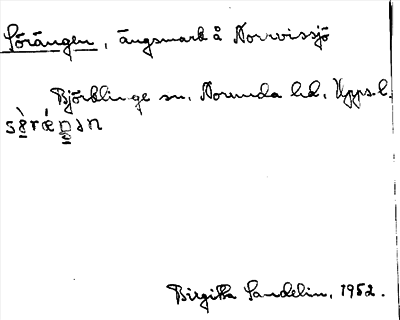 Sörängen, ängsmark å Norrvissjö
Björklinge sn. Norunda hd. Upps. l.
Birgitta Sandelin, 1952.